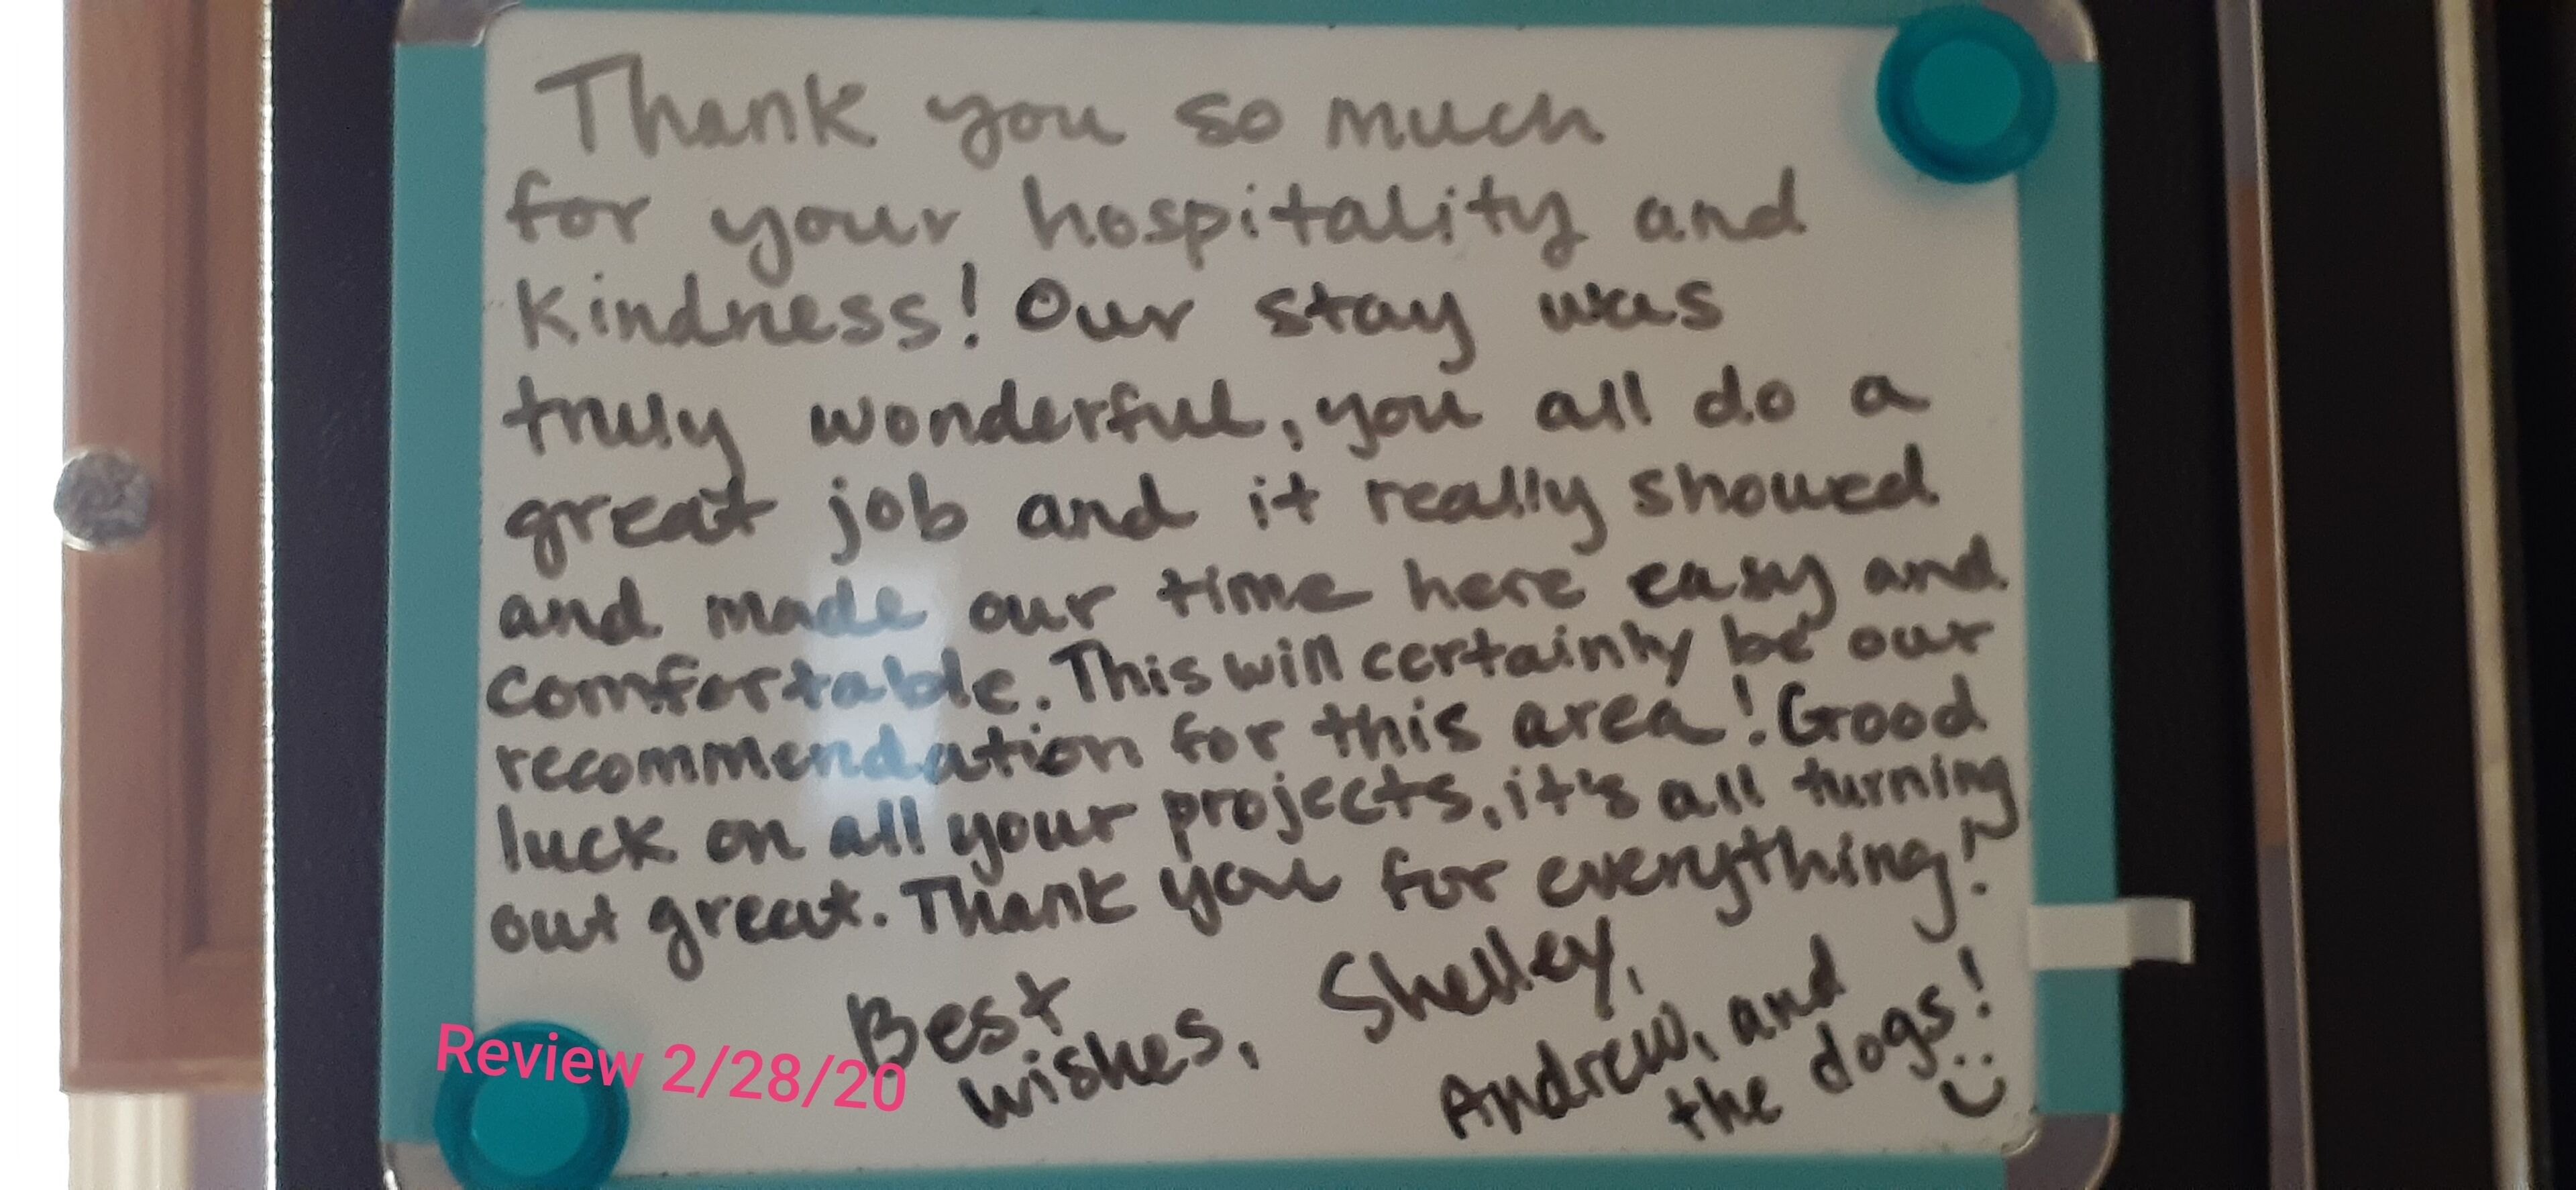 Thank you so much
for your hospitality and
kindness! Our stay was
truly wonderful, you all do a
great job and it really showed
and made our time here easy and
comfortable. This will certainly be our
recommendation for this area! Good
luck on all your projects, it's all turning
out great. Thank you for everything!
Best
wishes, Shelley,
Andrew, and
the dogs!
Review 2/28/20